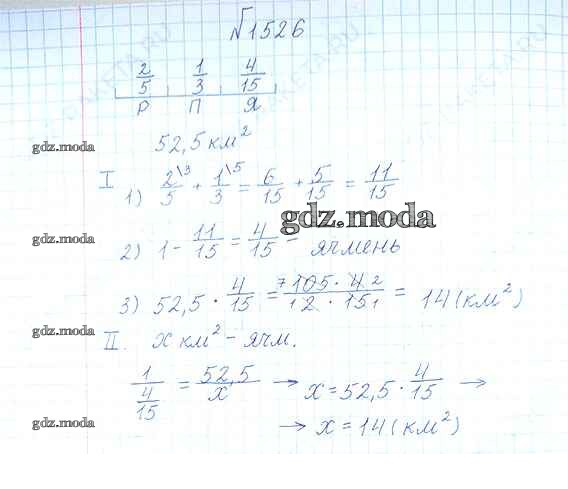 √1526
2/5 1/3 4/15
Р П Я
52,5 км²
gdz.moda
I 1) 2\3/5 + 1\5/3 = 6/15 + 5/15 = 11/15
gdz.moda
gdz.moda
2) 1 - 11/15 = 4/15 - ячмень
gdz.moda
3) 52,5 · 4/15 = 7 105 · 4 2 / 1 2 · 15 1 = 14 (км²)
gdz.moda
II. x км² - ячм.
1 / 4/15 = 52,5/x → x = 52,5 · 4/15 →
gdz.moda
→ x = 14 (км²)